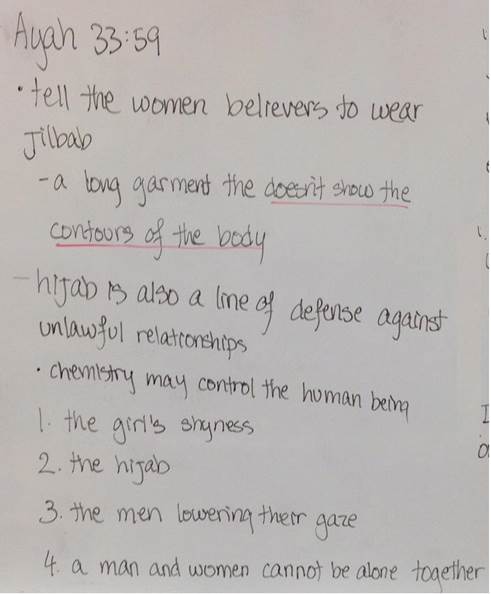 Ayah 33:59
• tell the women believers to wear
Jilbab
- a long garment the doesn't show the
contours of the body
- hijab is also a line of defense against
unlawful relationships
• chemistry may control the human being
1. the girl's shyness
2. the hijab
3. the men lowering their gaze
4. a man and women cannot be alone together